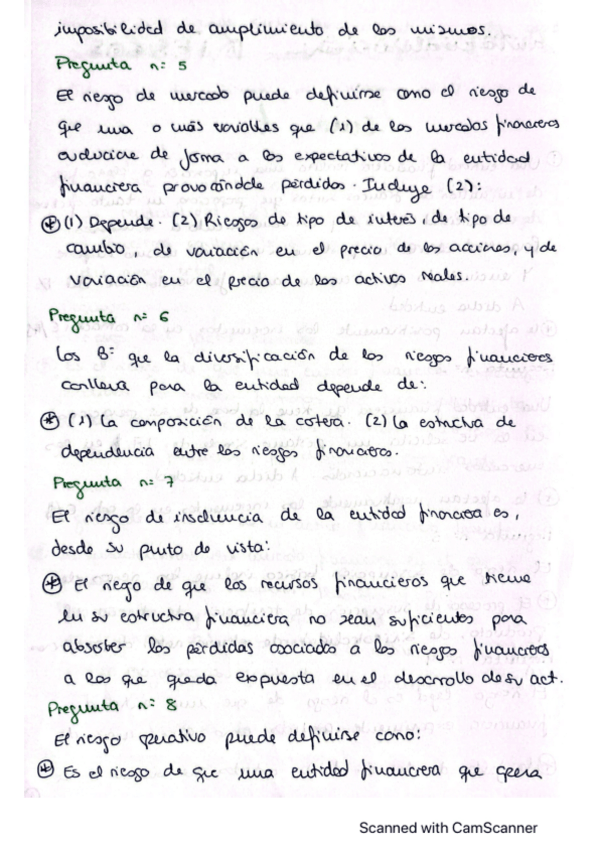 imposibilidad de cumplimiento de los mismos.
Pregunta nº 5
El riesgo de mercado puede definirse como el riesgo de
que una o más variables que (1) de los mercados financieros
evolucione de forma a las expectativas de la entidad
financiera provocándole pérdidas. Incluye (2):
(1) Depende. (2) Riesgos de tipo de interés, de tipo de
cambio, de variación en el precio de las acciones, y de
variación en el precio de los activos reales.
Pregunta nº 6
Los Bº que la diversificación de los riesgos financieros
conlleva para la entidad depende de:
(1) La composición de la cartera. (2) La estructura de
dependencia entre los riesgos financieros.
Pregunta nº 7
El riesgo de insolvencia de la entidad financiera es,
desde su punto de vista:
El riesgo de que los recursos financieros que tiene
en su estructura financiera no sean suficientes para
absorber las pérdidas asociadas a los riesgos financieros
a los que queda expuesta en el desarrollo de su act.
Pregunta nº 8
El riesgo operativo puede definirse como:
Es el riesgo de que una entidad financiera que opera
Scanned with CamScanner